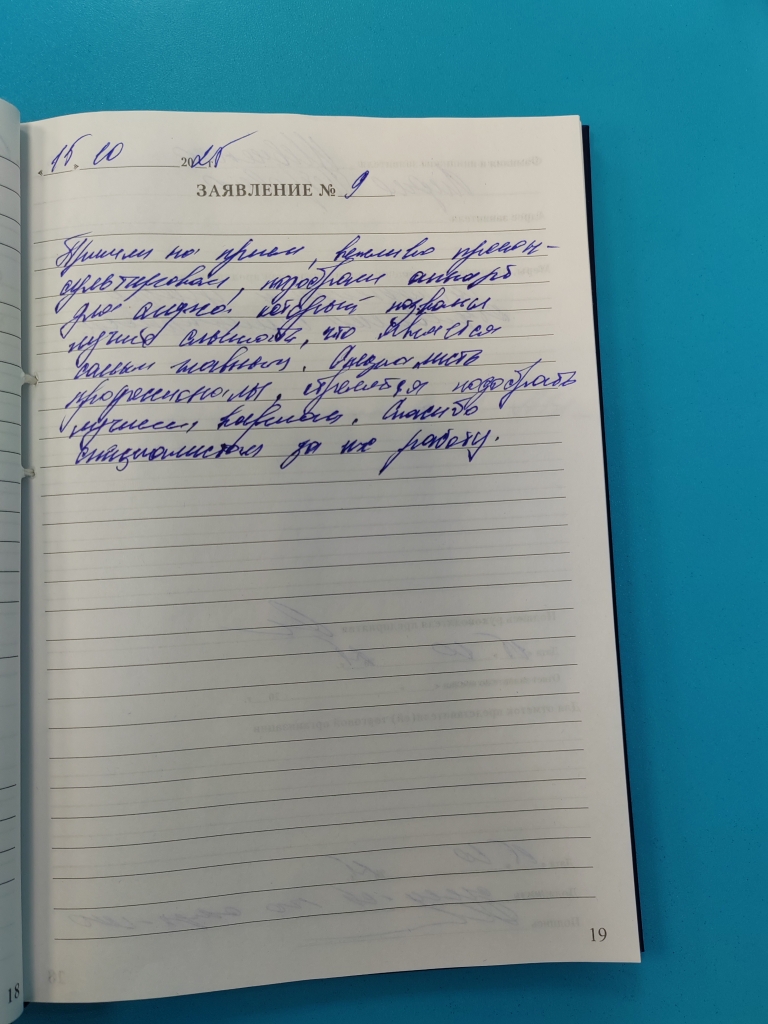 « 15 » 10 2025 г.
ЗАЯВЛЕНИЕ № 9
Пришли на прием, вежливо прокон-
сультировали, подобрали аппарат
для который
лучше слышать, что является
самым главным. Специалисты
профессионалы, стремятся подобрать
лучший вариант. Спасибо
специалистам за их работу.
19
18